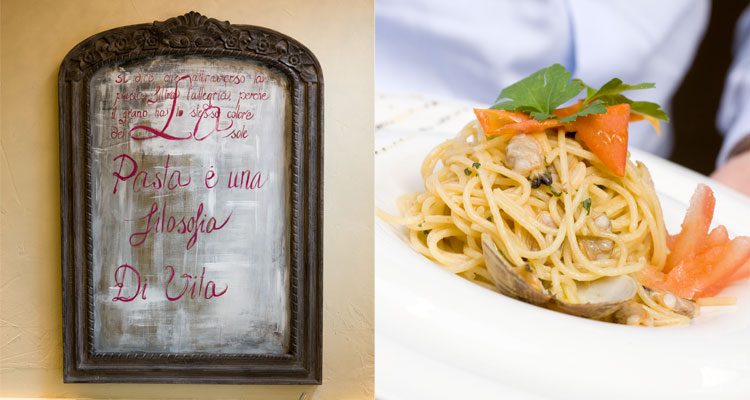 si dice che attraverso la
pasta filtra l'allegria, perchè
il grano ha lo stesso colore
del sole
La
Pasta è una
filosofia
Di Vita